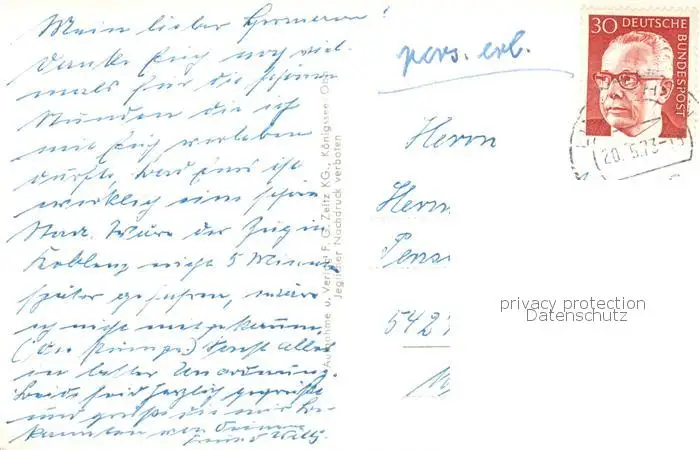 Mein lieber Hermann!
Danke Dich noch viel-
mals für die schönen
Stunden die ich
mit Dich verleben
durfte, Bad Ems ist
wirklich eine schöne
Stadt. Wäre der Zug in
Koblenz nicht 5 Minuten
später gefahren, wäre
ich nicht mitgekommen.
Sonst alles
in bester Unordnung.
Beide seid herzlich gegrüßt
und grüße die mir be-
kannten von Deinem
Freund Willi.
Aufnahme u. Verlag F. G. Zeitz KG., Königssee Obb.
Jeglicher Nachdruck verboten
pers. erl.
30 DEUTSCHE BUNDESPOST
20.5.73-15
Herrn
Herm
Pens
5421
privacy protection
Datenschutz